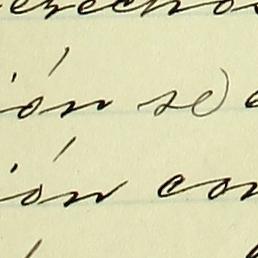 erechos
ión se
ión con